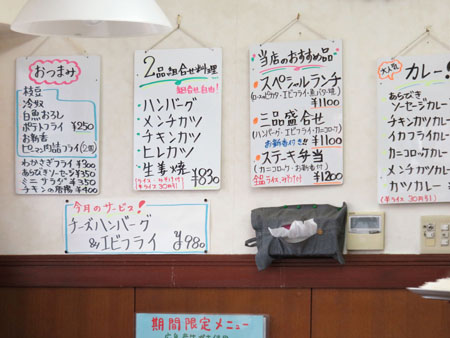 おつまみ
枝豆
冷奴
白魚おろし
ポテトフライ ¥250
お新香
わかさぎフライ ¥300
あらびきソーセージ ¥350
ミニサラダ ¥350
チキンの唐揚 ¥400
2品組合せ料理
組合せ自由!
ハンバーグ
メンチカツ
チキンカツ
ヒレカツ
生姜焼 ¥830
当店のおすすめ品
*スペシャルランチ
¥1100
*三品盛合せ
(ハンバーグ・エビフライ・カニコロッケ)
お新香付き!! ¥1100
*ステーキ弁当
(カニコロッケ・お新香付)
¥1200
大人気
カレー!
あらびき
ソーセージカレー
チキンカツカレー
イカフライカレー
カニコロッケカレー
メンチカツカレー
カツカレー
今月のサービス!
チーズハンバーグ
&エビフライ ¥980
期間限定メニュー